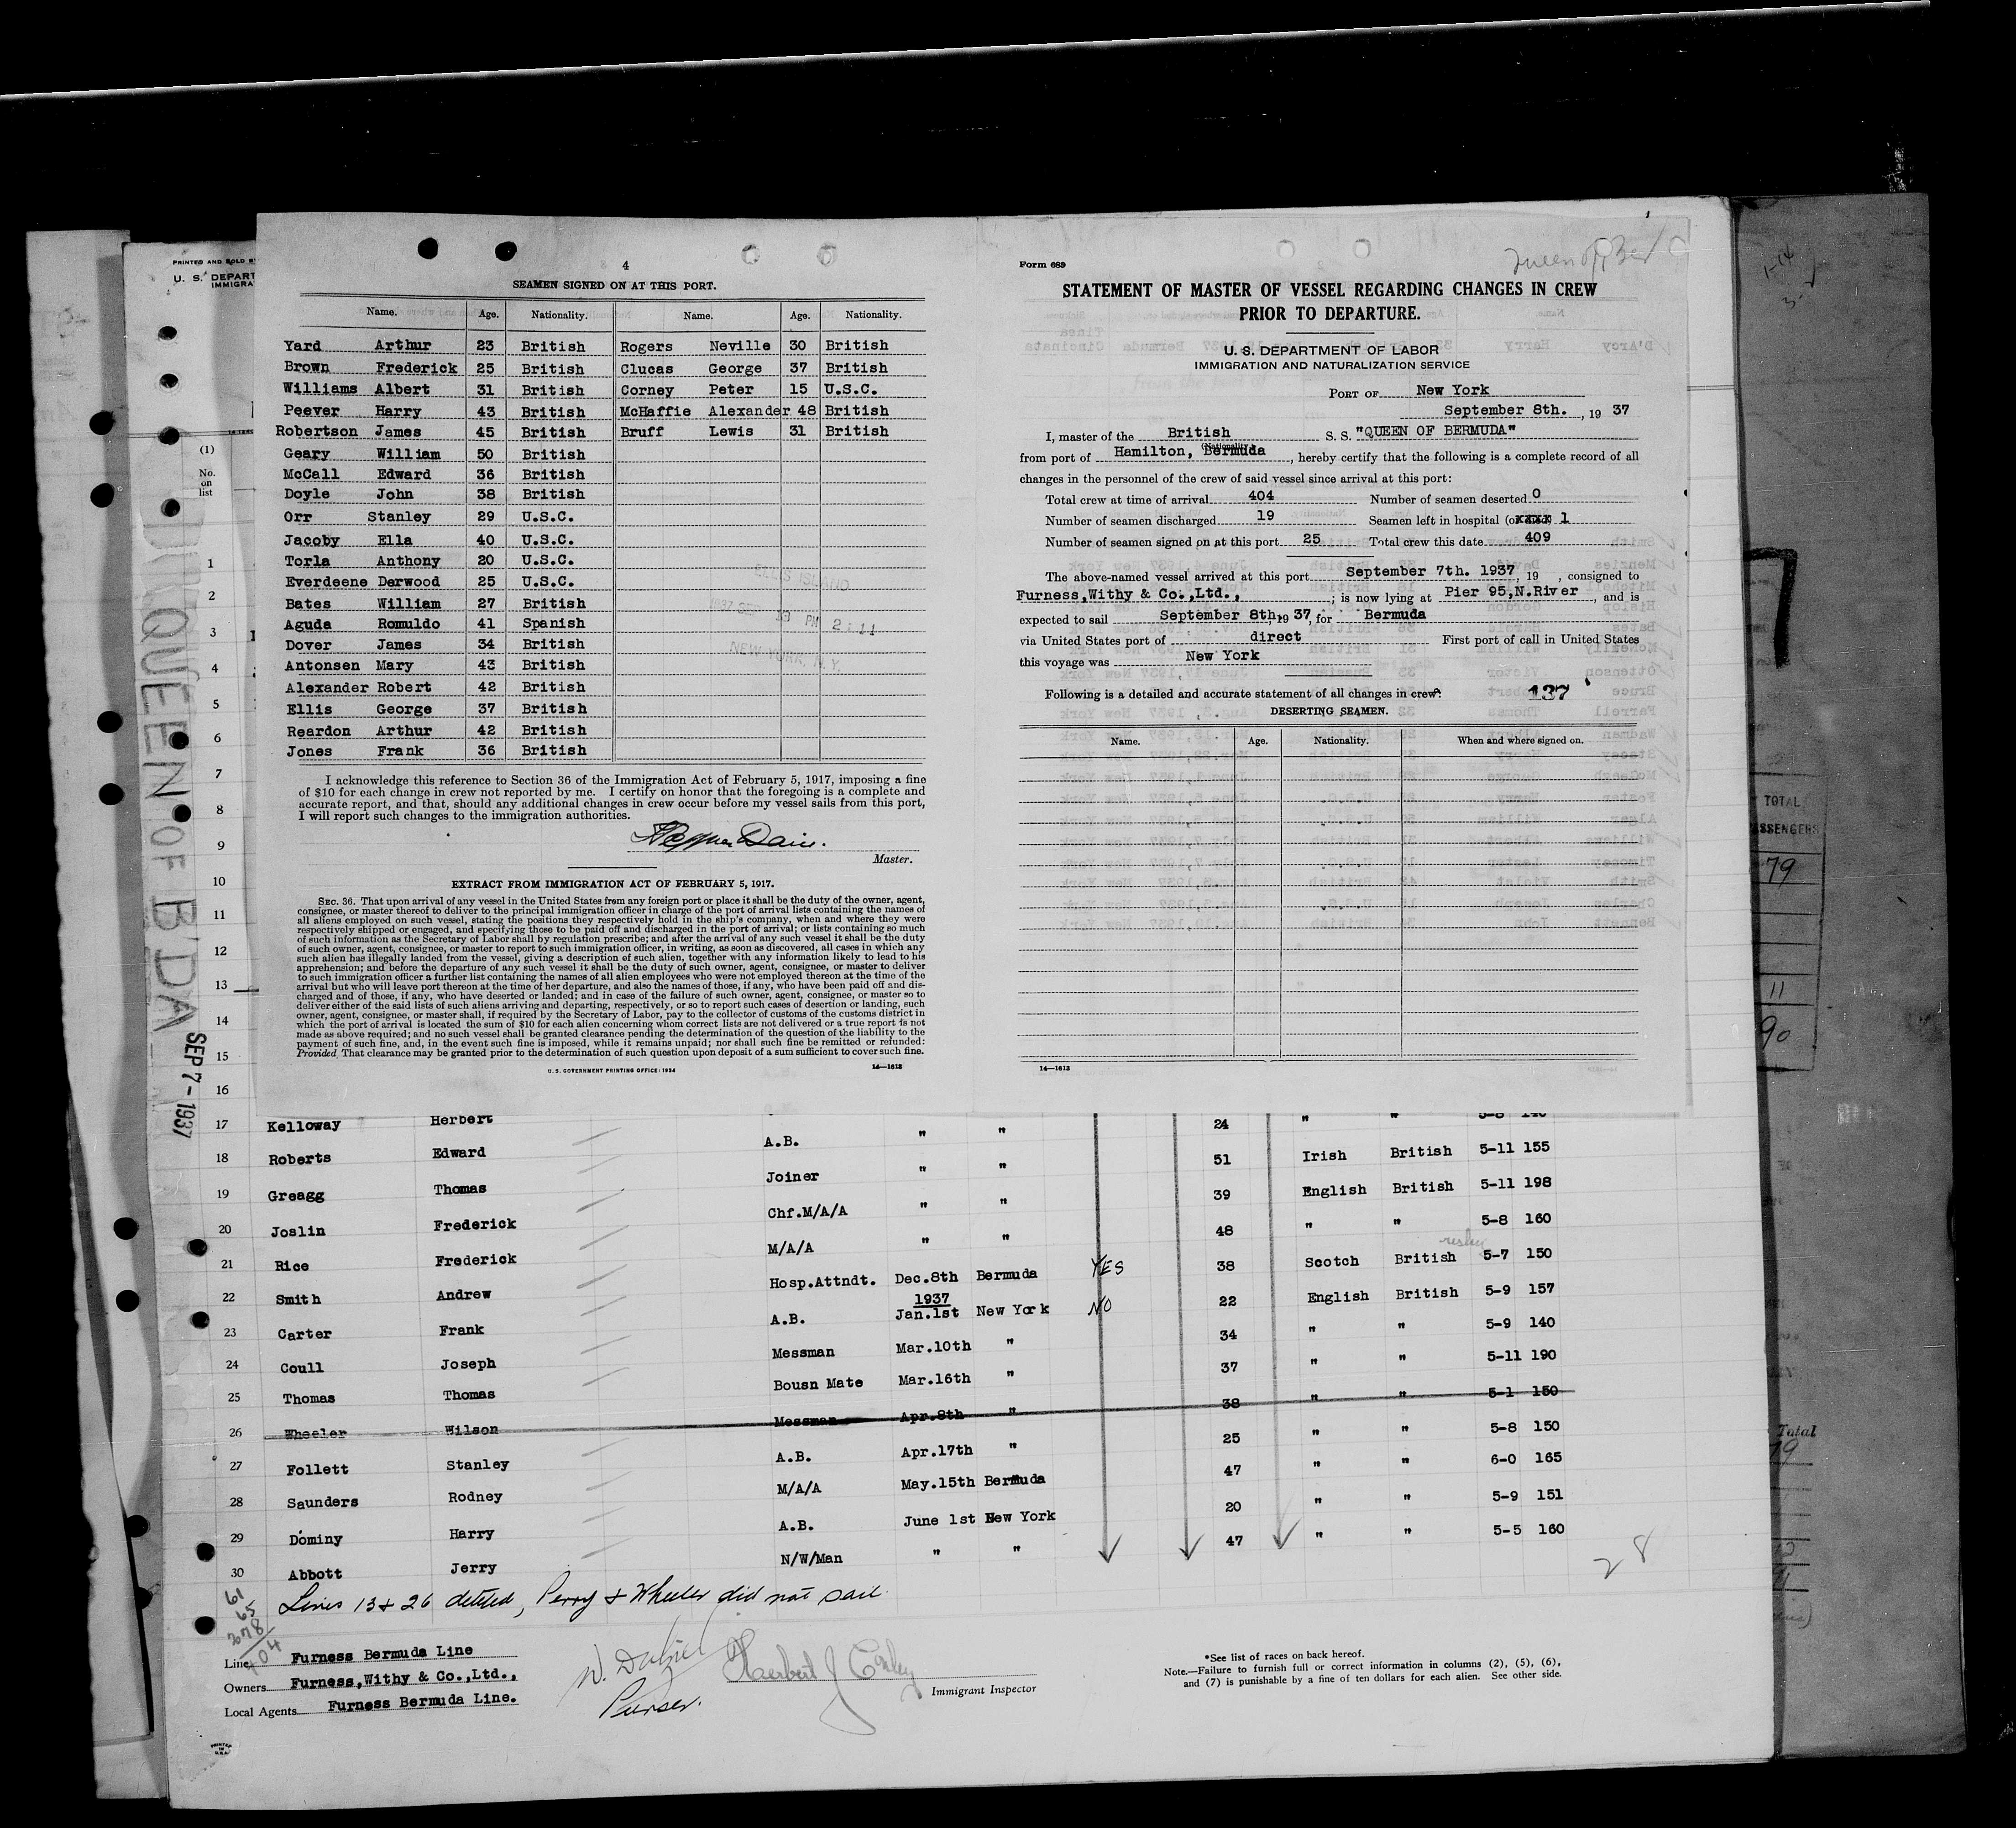 PRINTED AND SOLD B
U. S. DEPART
IMMIGRA
(1)
No.
on
list
1
2
3
4
5
6
7
8
9
10
11
12
13
14
15
16
QUEEN OF B'DA
SEP 7-1937
4
SEAMEN SIGNED ON AT THIS PORT.
Name. Age. Nationality. Name. Age. Nationality.
Yard Arthur 23 British Rogers Neville 30 British
Brown Frederick 25 British Clucas George 37 British
Williams Albert 31 British Corney Peter 15 U.S.C.
Peever Harry 43 British McHaffie Alexander 48 British
Robertson James 45 British Bruff Lewis 31 British
Geary William 50 British
McCall Edward 36 British
Doyle John 38 British
Orr Stanley 29 U.S.C.
Jacoby Ella 40 U.S.C.
Torla Anthony 20 U.S.C.
Everdeene Derwood 25 U.S.C.
Bates William 27 British
Aguda Romuldo 41 Spanish
Dover James 34 British
Antonsen Mary 43 British
Alexander Robert 42 British
Ellis George 37 British
Reardon Arthur 42 British
Jones Frank 36 British
ELLIS ISLAND
1937 SEP PM 2:11
NEW YORK, N.Y.
I acknowledge this reference to Section 36 of the Immigration Act of February 5, 1917, imposing a fine
of $10 for each change in crew not reported by me. I certify on honor that the foregoing is a complete and
accurate report, and that, should any additional changes in crew occur before my vessel sails from this port,
I will report such changes to the immigration authorities.
Master.
EXTRACT FROM IMMIGRATION ACT OF FEBRUARY 5, 1917.
SEC. 36. That upon arrival of any vessel in the United States from any foreign port or place it shall be the duty of the owner, agent,
consignee, or master thereof to deliver to the principal immigration officer in charge of the port of arrival lists containing the names of
all aliens employed on such vessel, stating the positions they respectively hold in the ship's company, when and where they were
respectively shipped or engaged, and specifying those to be paid off and discharged in the port of arrival; or lists containing so much
of such information as the Secretary of Labor shall by regulation prescribe; and after the arrival of any such vessel it shall be the duty
of such owner, agent, consignee, or master to report to such immigration officer, in writing, as soon as discovered, all cases in which any
such alien has illegally landed from the vessel, giving a description of such alien, together with any information likely to lead to his
apprehension; and before the departure of any such vessel it shall be the duty of such owner, agent, consignee, or master to deliver
to such immigration officer a further list containing the names of all alien employees who were not employed thereon at the time of the
arrival but who will leave port thereon at the time of her departure, and also the names of those, if any, who have been paid off and dis-
charged and of those, if any, who have deserted or landed; and in case of the failure of such owner, agent, consignee, or master so to
deliver either of the said lists of such aliens arriving and departing, respectively, or so to report such cases of desertion or landing, such
owner, agent, consignee, or master shall, if required by the Secretary of Labor, pay to the collector of customs of the customs district in
which the port of arrival is located the sum of $10 for each alien concerning whom correct lists are not delivered or a true report is not
made as above required; and no such vessel shall be granted clearance pending the determination of the question of the liability to the
payment of such fine, and, in the event such fine is imposed, while it remains unpaid; nor shall such fine be remitted or refunded:
Provided, That clearance may be granted prior to the determination of such question upon deposit of a sum sufficient to cover such fine.
U. S. GOVERNMENT PRINTING OFFICE: 1934 14—1613
Form 689
STATEMENT OF MASTER OF VESSEL REGARDING CHANGES IN CREW
PRIOR TO DEPARTURE.
U. S. DEPARTMENT OF LABOR
IMMIGRATION AND NATURALIZATION SERVICE
PORT OF New York
September 8th. , 19 37
I, master of the British S. S. "QUEEN OF BERMUDA"
(Nationality)
from port of Hamilton, Bermuda , hereby certify that the following is a complete record of all
changes in the personnel of the crew of said vessel since arrival at this port:
Total crew at time of arrival 404 Number of seamen deserted 0
Number of seamen discharged 19 Seamen left in hospital (or xxxx) 1
Number of seamen signed on at this port 25 Total crew this date 409
The above-named vessel arrived at this port September 7th. 1937, 19 , consigned to
Furness,Withy & Co.,Ltd., ; is now lying at Pier 95,N.River , and is
expected to sail September 8th, 19 37, for Bermuda
via United States port of direct First port of call in United States
this voyage was New York
Following is a detailed and accurate statement of all changes in crew: 137
DESERTING SEAMEN.
Name. Age. Nationality. When and where signed on.
14—1613
TOTAL
SSENGERS
79
11
90
Total
17 Kelloway Herbert A.B. " " 24 " "
18 Roberts Edward Joiner " " 51 Irish British 5-11 155
19 Greagg Thomas Chf.M/A/A " " 39 English British 5-11 198
20 Joslin Frederick M/A/A " " 48 " " 5-8 160
21 Rice Frederick Hosp.Attndt. Dec.8th Bermuda YES 38 Scotch British 5-7 150
22 Smith Andrew A.B. 1937 Jan.1st New York NO 22 English British 5-9 157
23 Carter Frank Messman Mar.10th " 34 " " 5-9 140
24 Coull Joseph Bousn Mate Mar.16th " 37 " " 5-11 190
25 Thomas Thomas Messman Apr.8th " 38 " " 5-1 150
26 Wheeler Wilson A.B. Apr.17th " 25 " " 5-8 150
27 Follett Stanley M/A/A May.15th Bermuda 47 " " 6-0 165
28 Saunders Rodney A.B. June 1st New York 20 " " 5-9 151
29 Dominy Harry N/W/Man " " 47 " " 5-5 160
30 Abbott Jerry
28
Lines 13 & 26 deleted, Perry & Wheeler did not sail
61
65
278
404
Line Furness Bermuda Line
Owners Furness,Withy & Co.,Ltd.,
Local Agents Furness Bermuda Line.
Purser.
Immigrant Inspector
*See list of races on back hereof.
Note.—Failure to furnish full or correct information in columns (2), (5), (6),
and (7) is punishable by a fine of ten dollars for each alien. See other side.